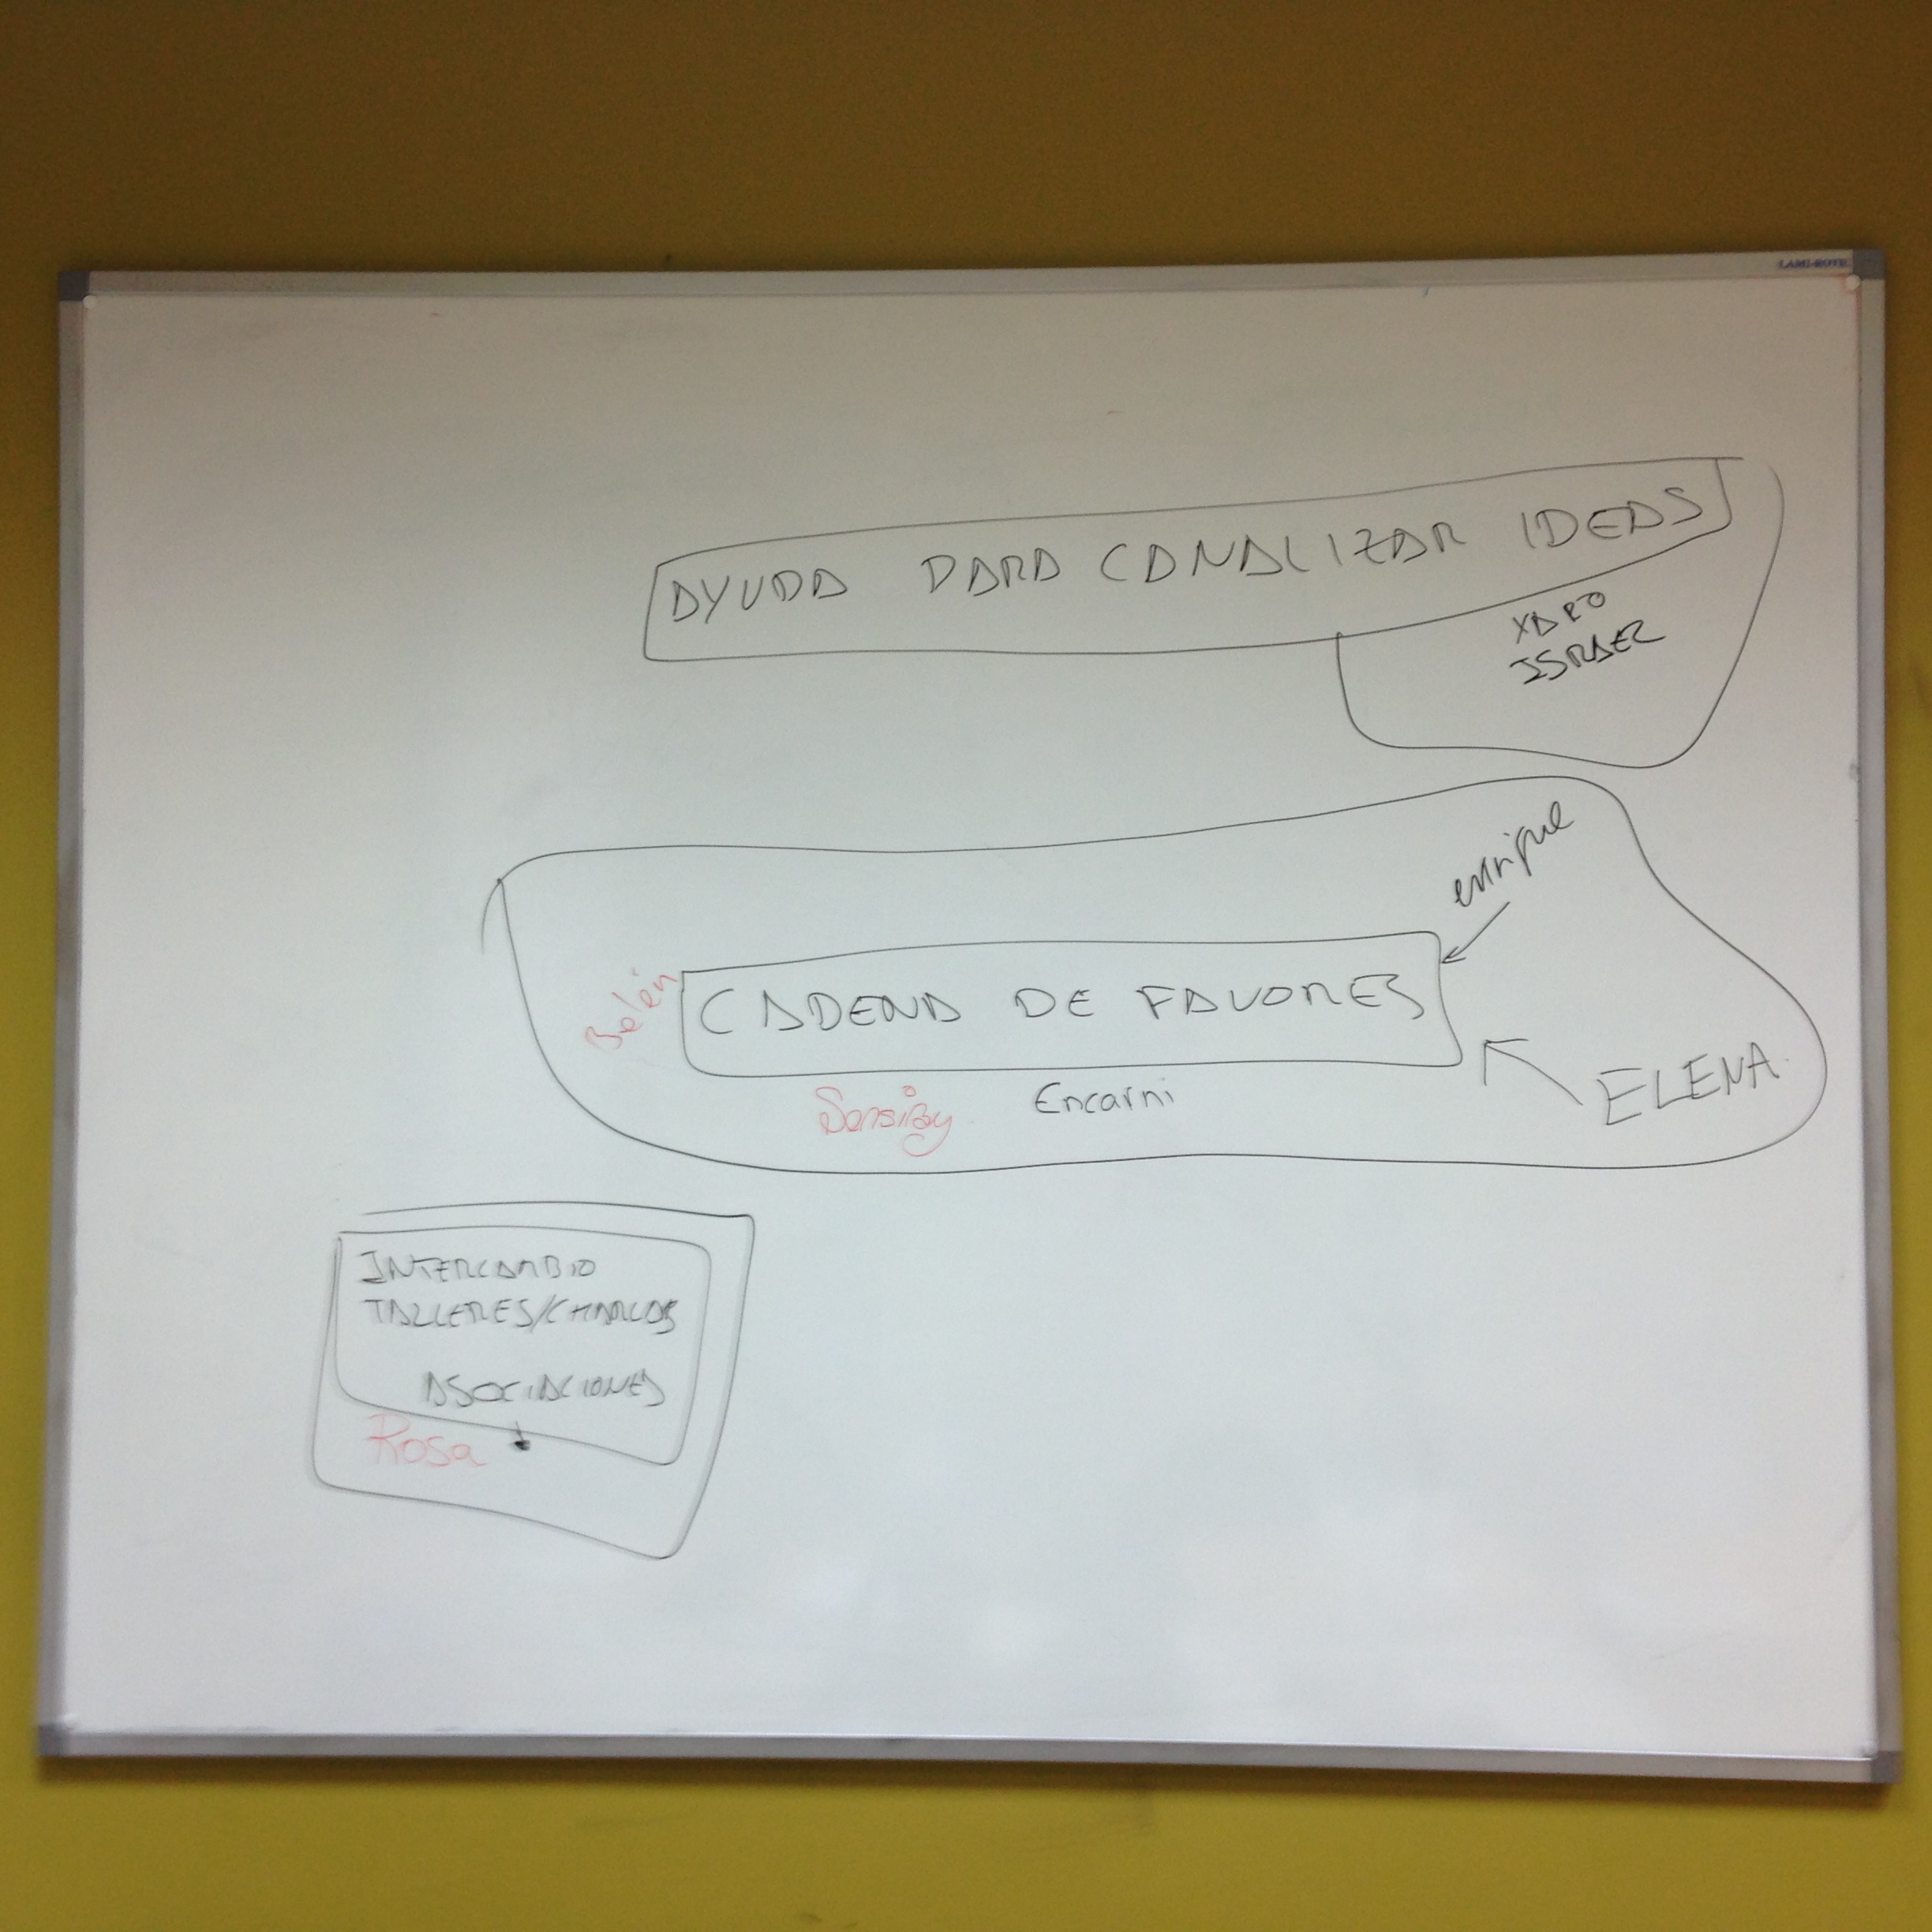 AYUDA PARA CANALIZAR IDEAS
XARO
ISRAEL
enrique
Belén
CADENA DE FAVORES
ELENA
Encarni
INTERCAMBIO
TALLERES/CHARLAS
ASOCIACIONES
Rosa